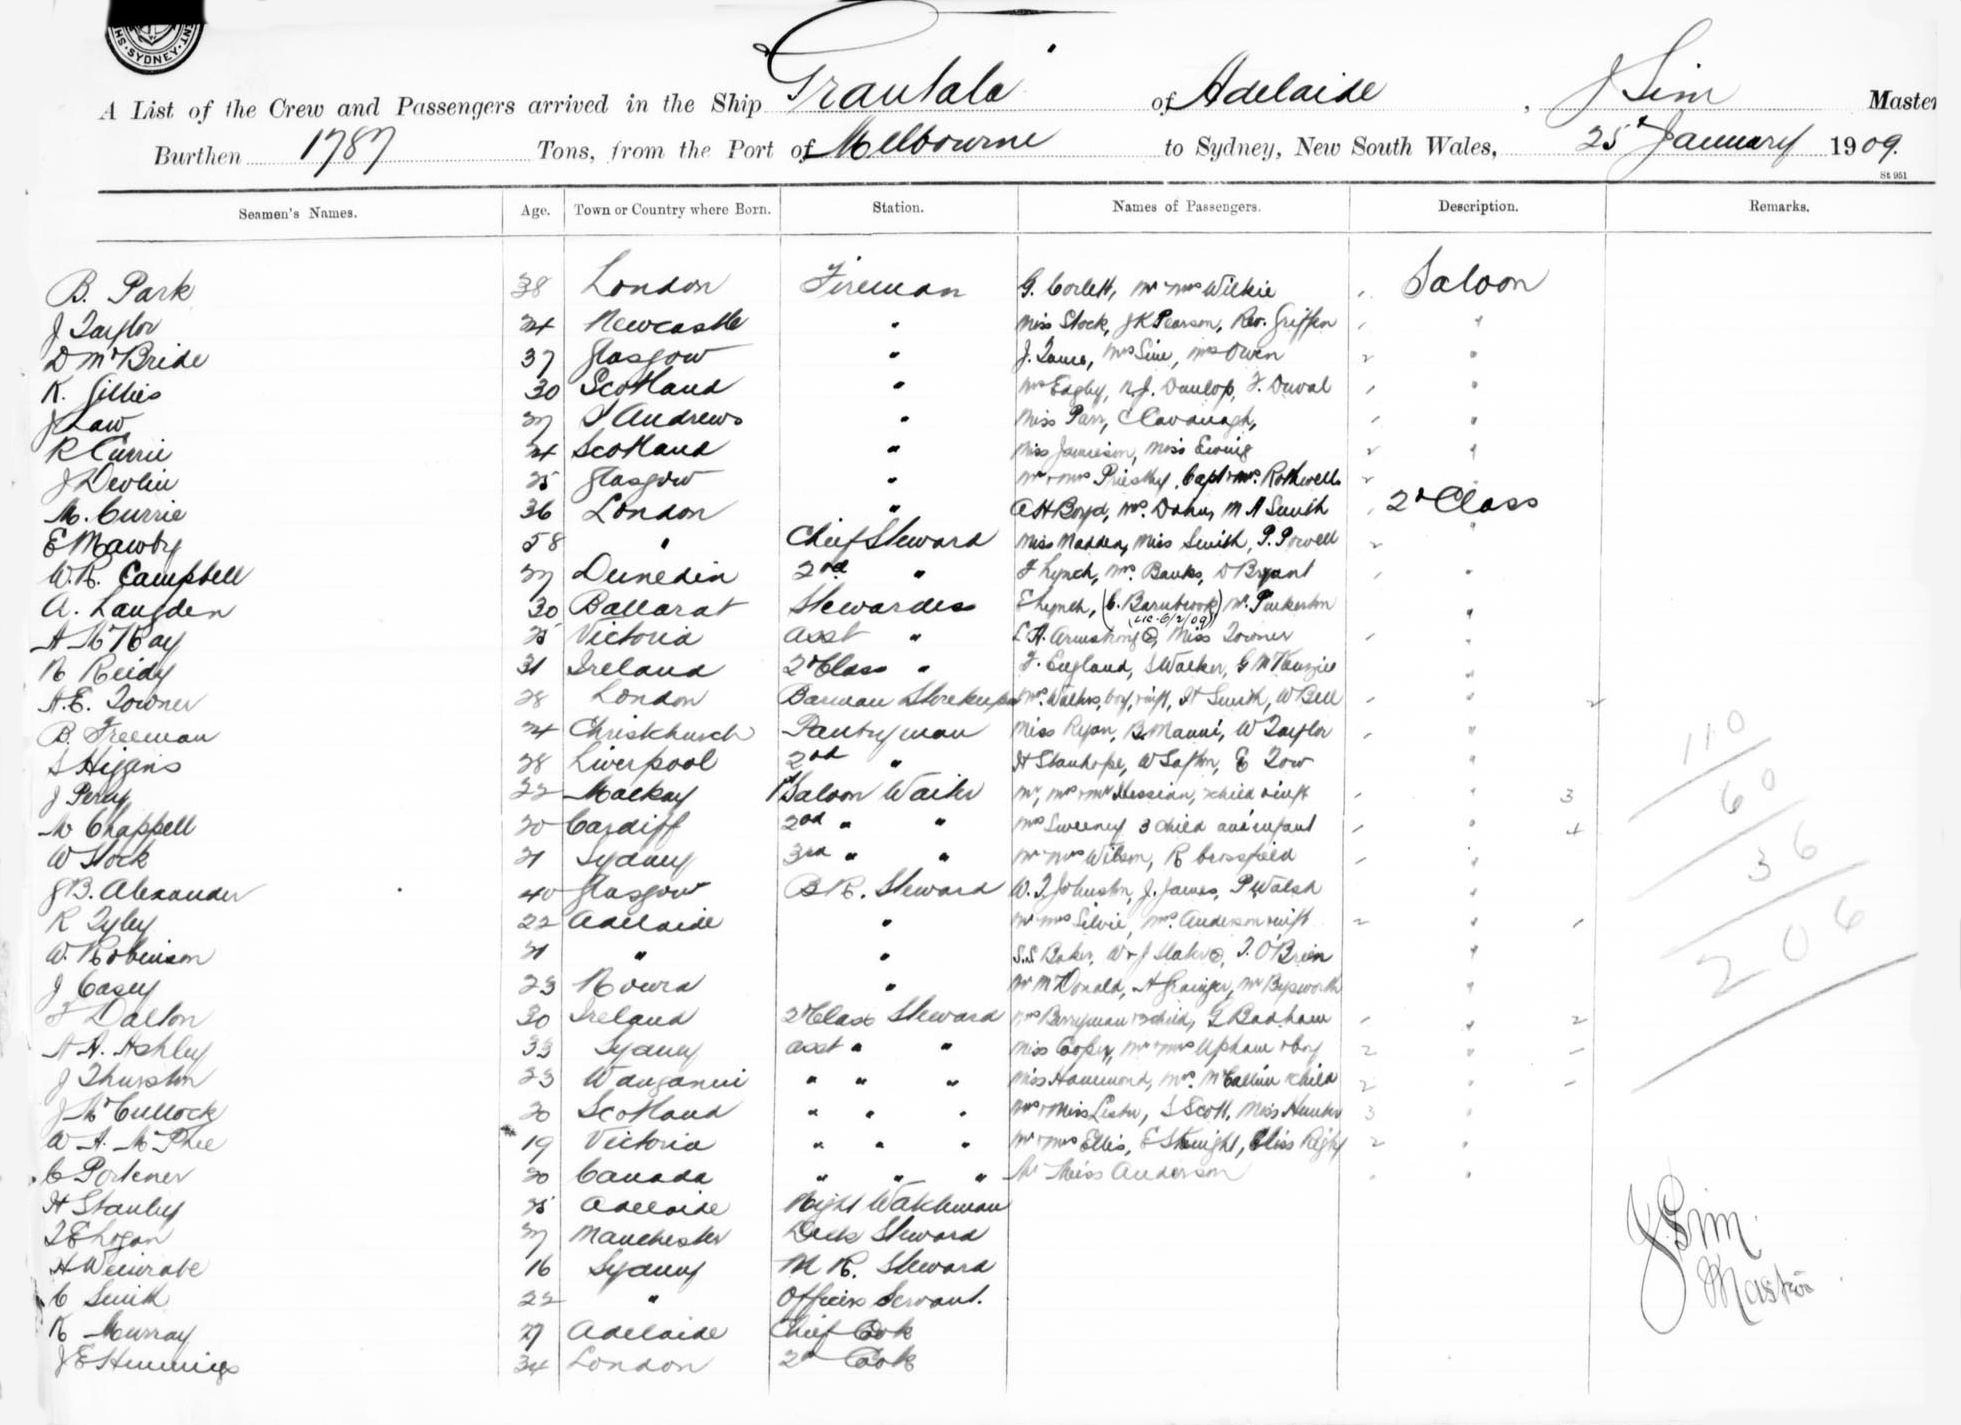 SYDNEY
Grantala
A List of the Crew and Passengers arrived in the Ship Grantala of Adelaide, J Sim Master
Burthen 1787 Tons, from the Port of Melbourne to Sydney, New South Wales, 25 January 1909.
St 951
Seamen's Names. Age. Town or Country where Born. Station. Names of Passengers. Description. Remarks.
B. Park 38 London Fireman G. Corlett, Mr Mrs Wilkie Saloon
J Taylor 24 Newcastle " Miss Stock, J K Pearson, Rev. Griffin "
D McBride 37 Glasgow " J. , Mrs Sim, Mrs Owen 2 "
K. Gillies 30 Scotland " Mrs , N. J. Dunlop, F. Duval "
J Law 27 St Andrews " Miss Parr, C Cavanagh, "
R Currie 24 Scotland " Miss Jamieson, Miss Ewing 2 "
J Devlin 25 Glasgow " Mr & Mrs Priestley, Capt & Mrs. Rothwell 2
M. Currie 36 London " A H Boyd, Mrs. , M A Smith 2nd Class
E Mawby 58 " Chief Steward Miss Madden, Miss Smith, P. Powell 2 "
W. R. Campbell 27 Dunedin 2nd " F Lynch, Mrs. Banks, D Bryant "
A. Langden 30 Ballarat Stewardess E Lynch, (C. Barnbrook) Mr. "
A McKay 25 Victoria asst " L A. Armstrong, Miss Towner "
N Reidy 31 Ireland 2nd Class " F. England, S Walker, G McKenzie "
A. E. Towner 28 London Barman Storekeeper Mrs. Walters, boy, inft, H Smith, W Bell " 2
B. Freeman 24 Christchurch Pantryman Miss Ryan, B. , W Taylor "
S Higans 28 Liverpool 2nd " H Stanhope, W , E Tow "
J Percy 22 Mackay 1st Saloon Waiter Mr, Mrs & Mr Hessian, child & inft " 3
W Chappell 20 Cardiff 2nd " " Mrs Sweeney 3 child and infant " 4
W Stock 21 Sydney 3rd " " Mr Mrs Wilson, R Crossfield "
J B. Alexander 40 Glasgow B R. Steward W. T Johnston, J. James, P Walsh "
R Tyley 22 Adelaide " Mr Mrs Silvie, Mrs. Anderson & inft 2 "
W. Robinson 21 " " S. S Baker, W & J , T. O'Brien "
J Casey 23 Nowra " Mr McDonald, A Grainger, Mr "
F Dalton 30 Ireland 2nd Class Steward Mrs Berryman & 2 child, G Badham " 2
A. H. Ashley 33 Sydney asst " " Miss Cooper, Mr & Mrs Upham & boy 2 "
J Thurston 23 Wanganui " " " Miss Hammond, Mrs. & child 2 "
J McCullock 20 Scotland " " " Mrs & Miss Lester, S Scott, Miss Hunter 3 "
W A. McPhee 19 Victoria " " " Mr & Mrs Ellis, E , 2 "
C Portener 20 Canada " " " Mr Miss Anderson "
H Stanley 25 Adelaide Night Watchman
T E Logan 27 Manchester Deck Steward
H Weinrabe 16 Sydney M R. Steward
C Smith 22 " Officers Servant.
K Murray 29 Adelaide Chief Cook
J E Hemmings 34 London 2nd Cook
110
60
36
206
J Sim
Master